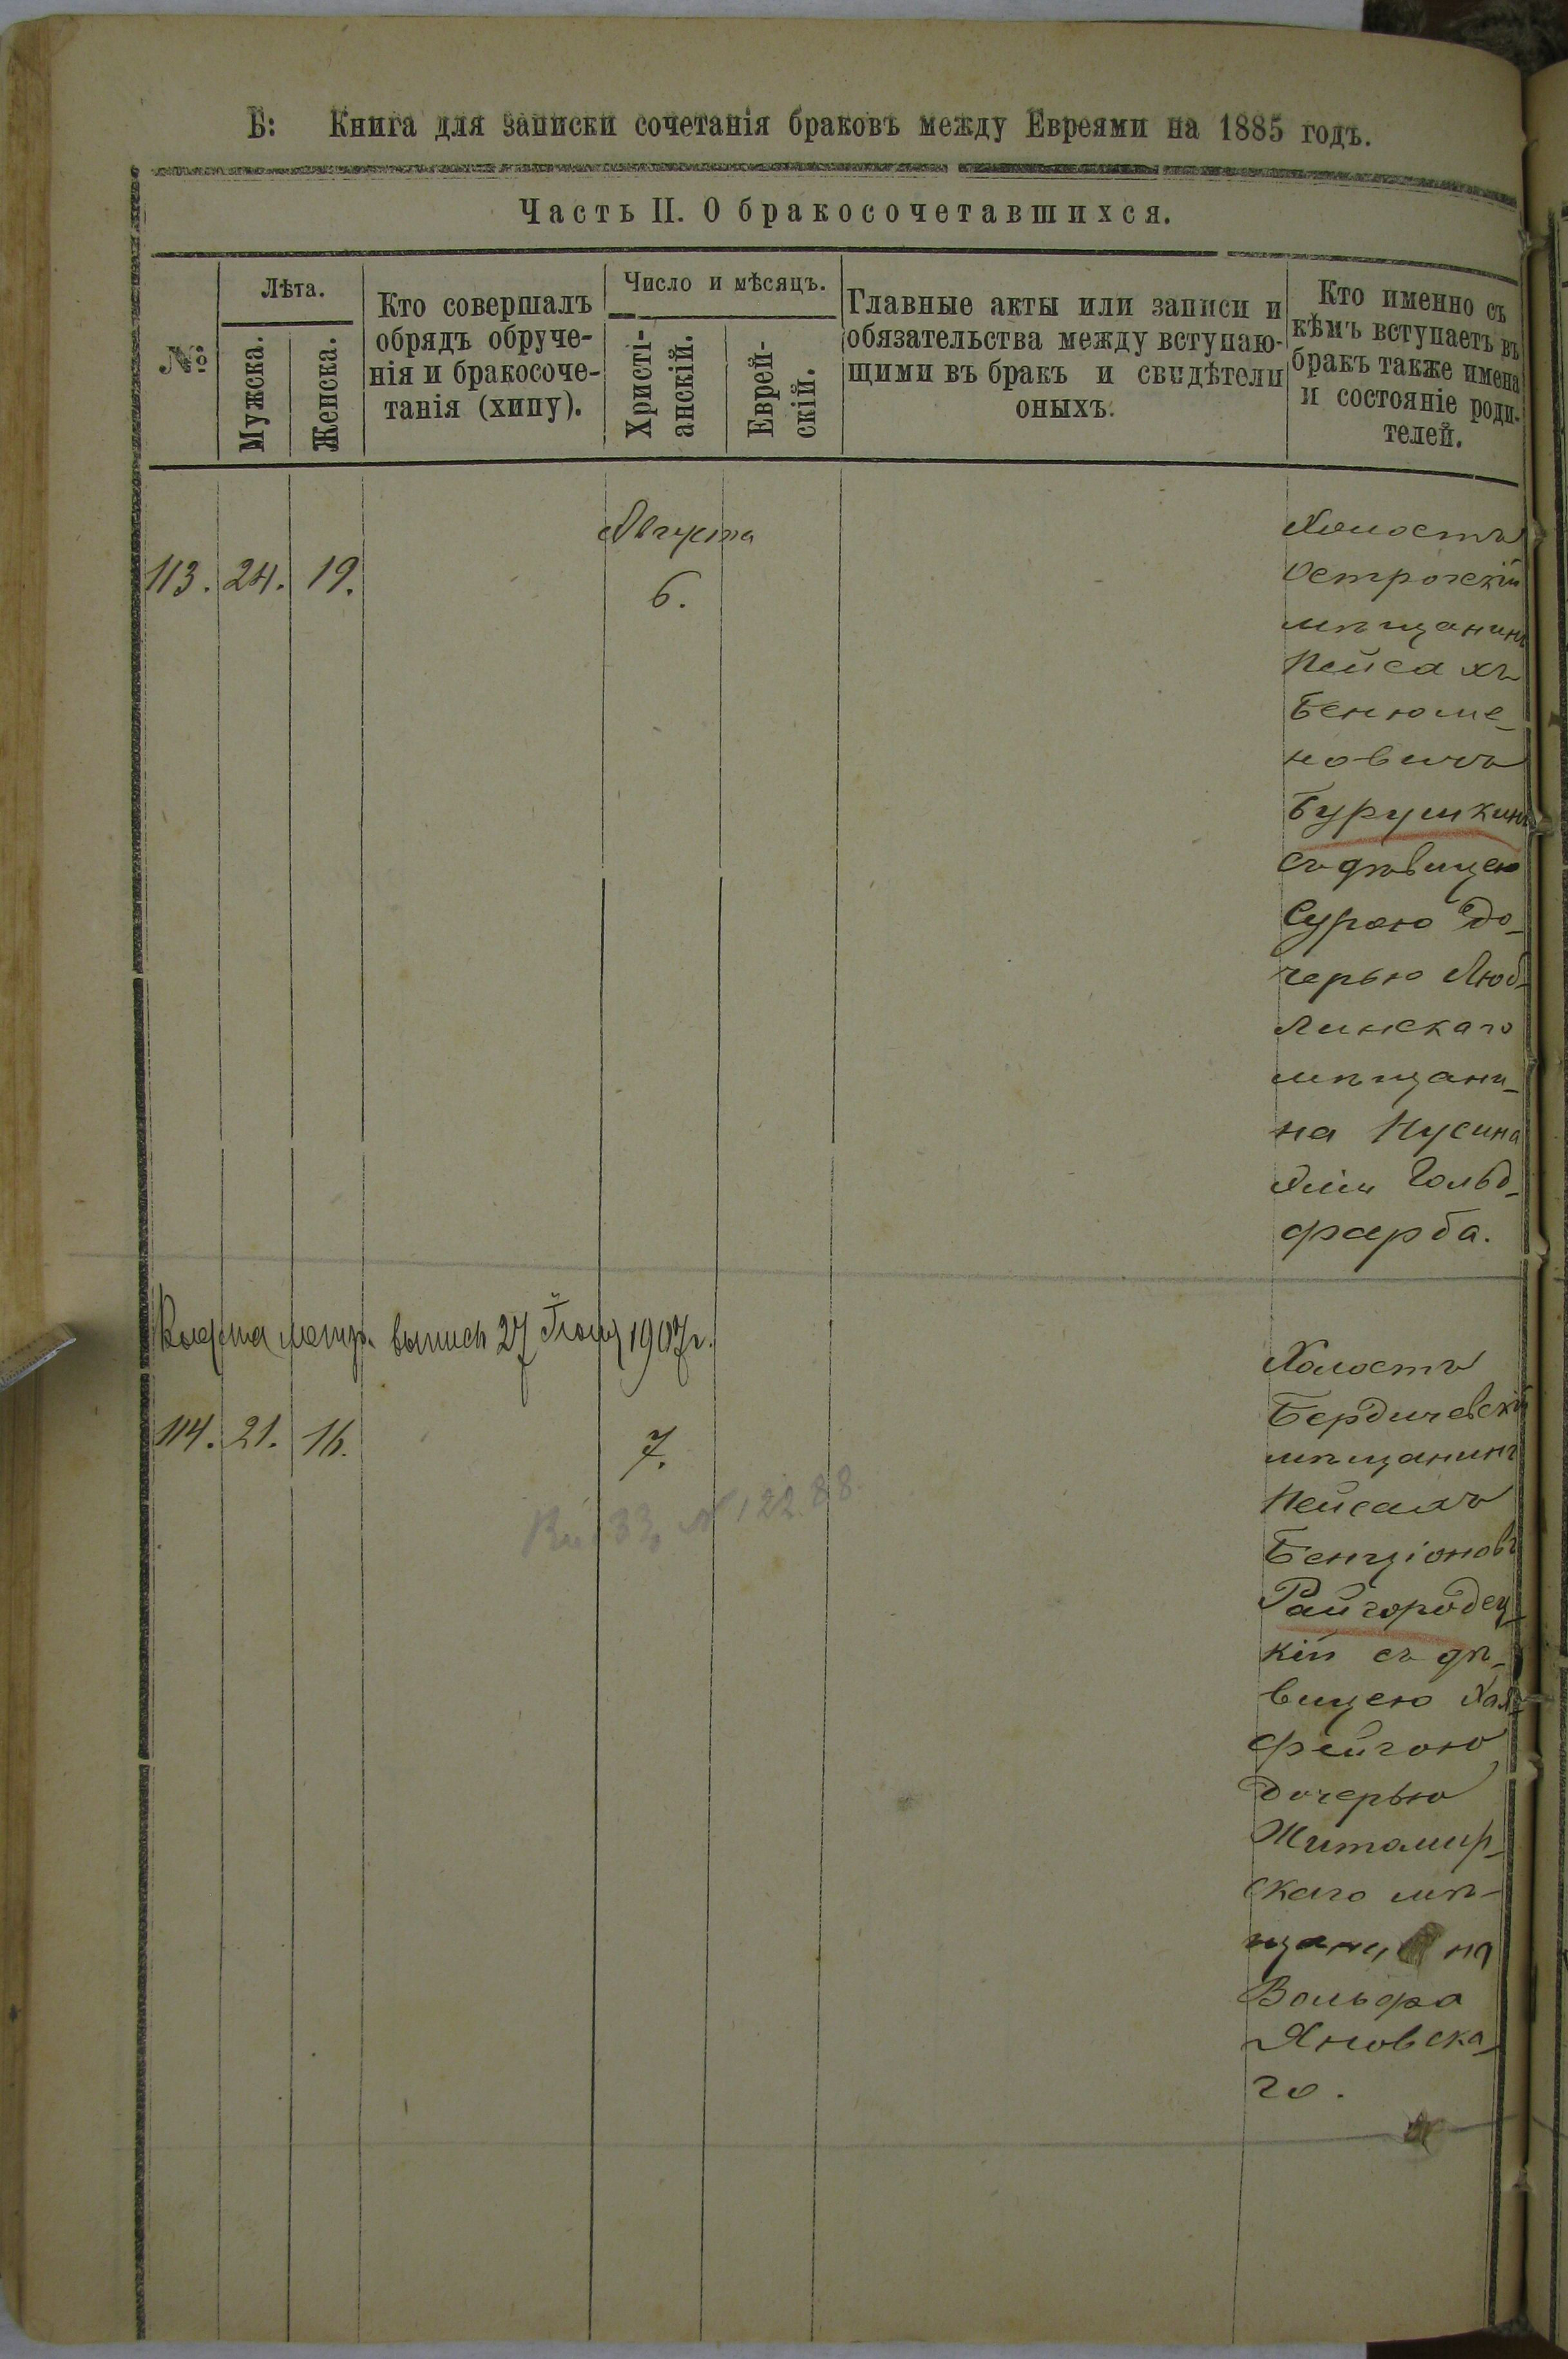 Б: Книга для записки сочетанія браковъ между Евреями на 1885 годъ.
Часть II. О бракосочетавшихся.
№
Лѣта.
Мужска.
Женска.
Кто совершалъ
обрядъ обруче-
нія и бракосоче-
танія (хипу).
Число и мѣсяцъ.
Христі-
анскій.
Еврей-
скій.
Главные акты или записи и
обязательства между вступаю-
щими въ бракъ и свидѣтели
оныхъ.
Кто именно съ
кѣмъ вступаетъ въ
бракъ также имена
и состояніе роди-
телей.
Августа
113. 24. 19. 6.
Холостъ
Острогскій
мѣщанинъ
Пейсахъ
Бенюме-
новичъ
Бурушкинъ
съ дѣвицею
Сурою до-
черью Люб-
линскаго
мѣщани-
на Нусина
Гольд-
фарба.
метр. выпись 27 1907 г.
114. 21. 16. 7.
33, № 12288.
Холостъ
Бердичевскій
мѣщанинъ
Пейсахъ
Бенціоновъ
Райгородец-
кій съ дѣ-
вицею Хая-
Фейгою
дочерью
Житомир-
скаго мѣ-
щани на
Вольфа
Яновска-
го.